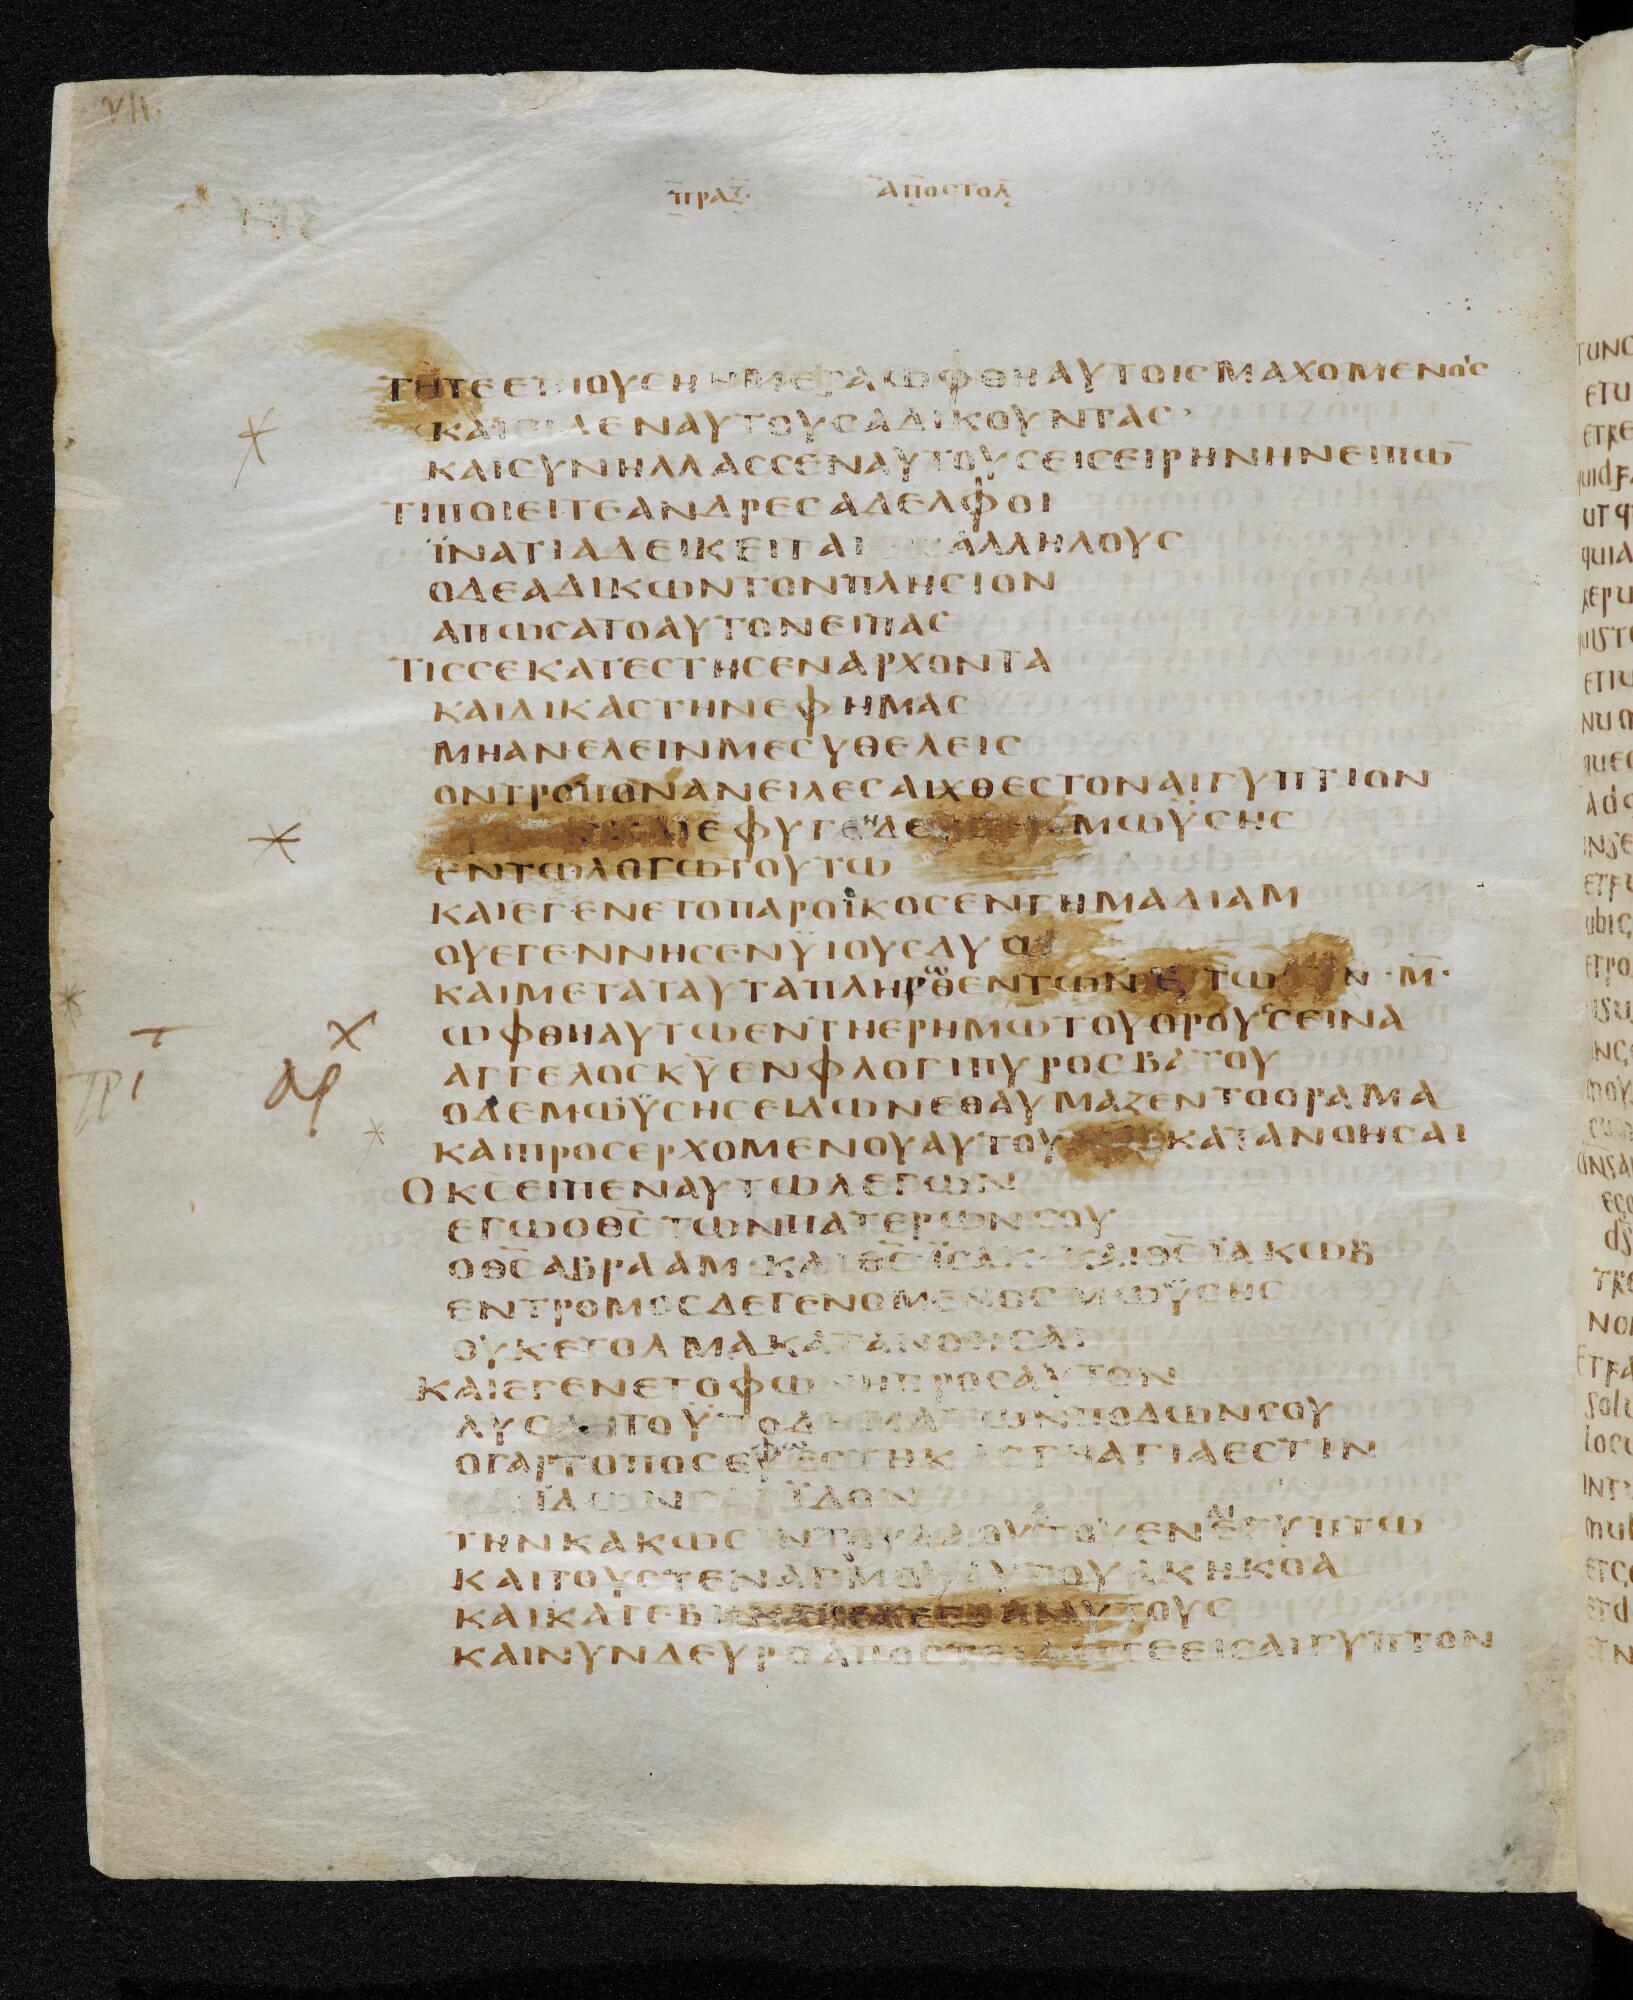 VII.
ΠΡΑΞ. ΑΠΟΣΤΟΛ
ΤΗΤΕΕΠΙΟΥΣΗ ΗΜΕΡΑΩΦΘΗΑΥΤΟΙΣΜΑΧΟΜΕΝΟΙΣ
ΚΑΙΕΙΔΕΝΑΥΤΟΥΣΑΔΙΚΟΥΝΤΑΣ
ΚΑΙΣΥΝΗΛΛΑΣΣΕΝΑΥΤΟΥΣΕΙΣΕΙΡΗΝΗΝΕΙΠΩ̅
ΤΙΠΟΙΕΙΤΕΑΝΔΡΕΣΑΔΕΛΦΟΙ
ΪΝΑΤΙΑΔΕΙΚΕΙΤΑΙ ΑΛΛΗΛΟΥΣ
ΟΔΕΑΔΙΚΩΝΤΟΝΠΛΗΣΙΟΝ
ΑΠΩΣΑΤΟΑΥΤΟΝΕΙΠΑΣ
ΤΙΣΣΕΚΑΤΕΣΤΗΣΕΝΑΡΧΟΝΤΑ
ΚΑΙΔΙΚΑΣΤΗΝΕΦΗΜΑΣ
ΜΗΑΝΕΛΕΙΝΜΕΣΥΘΕΛΕΙΣ
ΟΝΤΡΟΠΟΝΑΝΕΙΛΕΣΑΙΧΘΕΣΤΟΝΑΙΓΥΠΤΙΟΝ
ΕΦΥΓΕ ΔΕ ΜΩΫΣΗΣ
ΕΝΤΩΛΟΓΩΤΟΥΤΩ
ΚΑΙΕΓΕΝΕΤΟΠΑΡΟΙΚΟΣΕΝΓΗΜΑΔΙΑΜ
ΟΥΕΓΕΝΝΗΣΕΝΫΙΟΥΣΔΥΟ
ΚΑΙΜΕΤΑΤΑΥΤΑΠΛΗΡΩΘΕΝΤΩΝΕΤΩΝ ·Μ̅·
ΩΦΘΗΑΥΤΩΕΝΤΗΕΡΗΜΩΤΟΥΟΡΟΥΣΣΕΙΝΑ
ΑΓΓΕΛΟΣΚ̅Υ̅ΕΝΦΛΟΓΙΠΥΡΟΣΒΑΤΟΥ
ΟΔΕΜΩΫΣΗΣΕΙΔΩΝΕΘΑΥΜΑΖΕΝΤΟΟΡΑΜΑ
ΚΑΙΠΡΟΣΕΡΧΟΜΕΝΟΥΑΥΤΟΥ ΚΑΤΑΝΟΗΣΑΙ
ΟΚ̅Σ̅ΕΙΠΕΝΑΥΤΩΛΕΓΩΝ
ΕΓΩΟΘ̅Σ̅ΤΩΝΠΑΤΕΡΩΝΣΟΥ
ΟΘ̅Σ̅ΑΒΡΑΑΜ·ΚΑΙΘ̅Σ̅ΪΣΑΚ·ΚΑΙΘ̅Σ̅ΪΑΚΩΒ
ΕΝΤΡΟΜΟΣΔΕΓΕΝΟΜΕΝΟΣΜΩΫΣΗΣ
ΟΥΚΕΤΟΛΜΑΚΑΤΑΝΟΗΣΑΙ
ΚΑΙΕΓΕΝΕΤΟΦΩΝΗΠΡΟΣΑΥΤΟΝ
ΛΥΣΑΙΤΟΫΠΟΔΗΜΑΤΩΝΠΟΔΩΝΣΟΥ
ΟΓΑΡΤΟΠΟΣΕΦΩΕΣΤΗΚΑΣΓΗΑΓΙΑΕΣΤΙΝ
ΚΑΙΪΔΩΝΓΑΡΪΔΟΝ
ΤΗΝΚΑΚΩΣΙΝΤΟΥΛΑΟΥΤΟΥΕΝΑΙΓΥΠΤΩ
ΚΑΙΤΟΥΣΤΕΝΑΓΜΟΥΑΥΤΟΥΑΚΗΚΟΑ
ΚΑΙΚΑΤΕΒΗΝ ΑΥΤΟΥΣ
ΚΑΙΝΥΝΔΕΥΡΟΑΠΟΣΤΕΙΛΩΣΕΕΙΣΑΙΓΥΠΤΟΝ